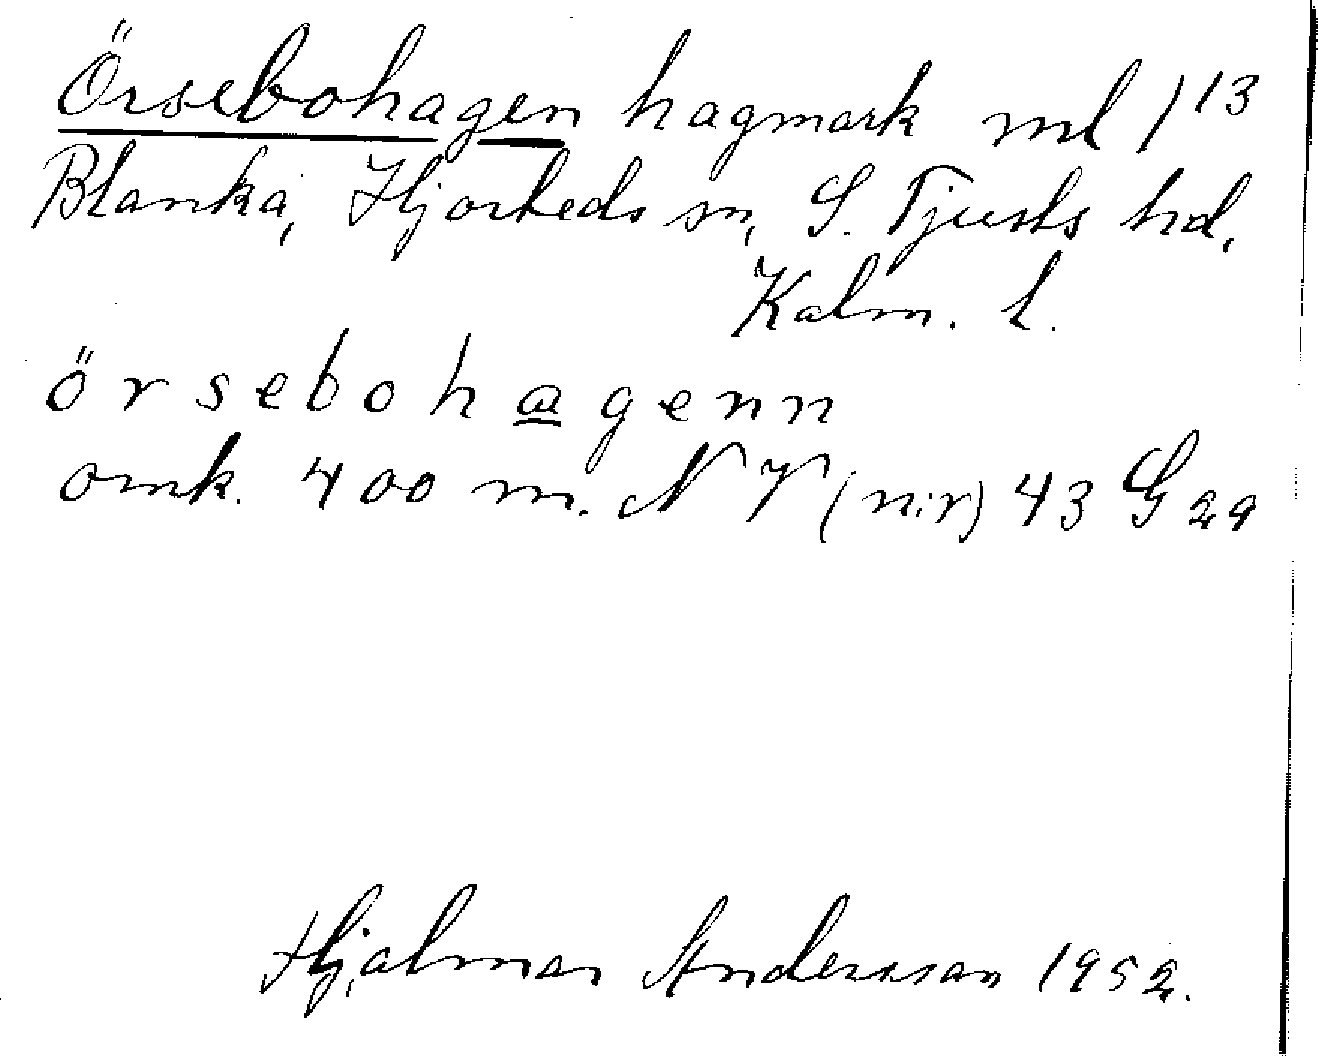 Örsebohagen hagmark ml 1¹³
Blanka, Hjorteds sn, S. Tjusts hd,
Kalm. l.
örsebohagenn
omk. 400 m. NV (n:r) 43 G 29
Hjalmar Andersson 1952.